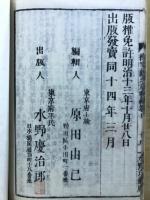 版權免許明治十三年十月廿八日
出版發賣同十四年三月
東京府士族
編輯人 原田由己
東京府平民
出版人 水野慶治郎